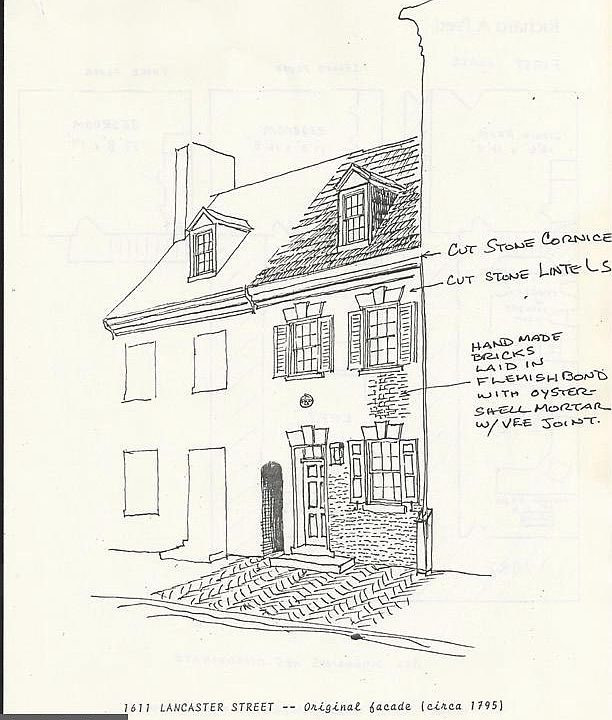 CUT STONE CORNICE
CUT STONE LINTELS
HAND MADE
BRICKS
LAID IN
FLEMISH BOND
WITH OYSTER-
SHELL MORTAR
W/ VEE JOINT.
1611 LANCASTER STREET -- Original facade (circa 1795)